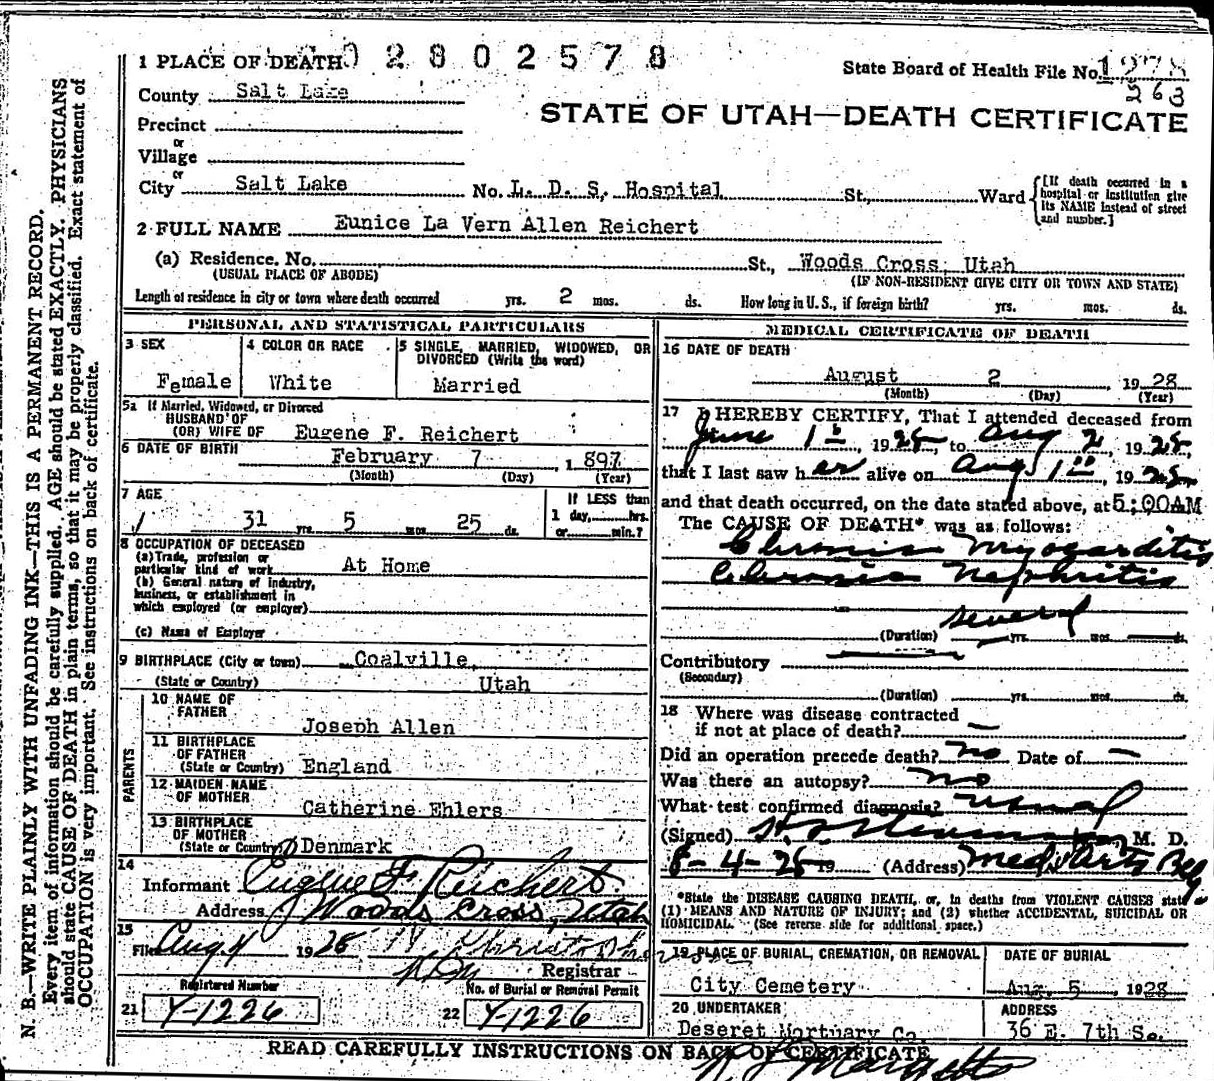 1 PLACE OF DEATH 0 2 8 0 2 5 7 8
State Board of Health File No. 1278
263
County Salt Lake
STATE OF UTAH—DEATH CERTIFICATE
Precinct
or
Village
or
City Salt Lake No. L. D. S. Hospital St., Ward
[If death occurred in a hospital or institution give its NAME instead of street and number.]
2 FULL NAME Eunice La Vern Allen Reichert
(a) Residence. No. St., Woods Cross, Utah
(USUAL PLACE OF ABODE) (IF NON-RESIDENT GIVE CITY OR TOWN AND STATE)
Length of residence in city or town where death occurred yrs. 2 mos. ds. How long in U. S., if foreign birth? yrs. mos. ds.
PERSONAL AND STATISTICAL PARTICULARS
3 SEX
Female
4 COLOR OR RACE
White
5 SINGLE, MARRIED, WIDOWED, OR
DIVORCED (Write the word)
Married
5a If Married, Widowed, or Divorced
HUSBAND OF
(OR) WIFE OF Eugene F. Reichert
6 DATE OF BIRTH February 7, 1897
(Month) (Day) (Year)
7 AGE
31 yrs. 5 mos. 25 ds.
If LESS than
1 day, hrs.
or min.?
8 OCCUPATION OF DECEASED
(a) Trade, profession or
particular kind of work At Home
(b) General nature of industry,
business, or establishment in
which employed (or employer)
(c) Name of Employer
9 BIRTHPLACE (City or town) Coalville,
(State or Country) Utah
PARENTS
10 NAME OF
FATHER
Joseph Allen
11 BIRTHPLACE
OF FATHER
(State or Country) England
12 MAIDEN NAME
OF MOTHER
Catherine Ehlers
13 BIRTHPLACE
OF MOTHER
(State or Country) Denmark
14
Informant Eugene F. Reichert
Address Woods Cross, Utah
15
Filed Aug 4 1928
Registrar
Registered Number
21 Y-1226
No. of Burial or Removal Permit
22 Y-1226
MEDICAL CERTIFICATE OF DEATH
16 DATE OF DEATH
August 2, 1928
(Month) (Day) (Year)
17 I HEREBY CERTIFY, That I attended deceased from
June 1, 1928 to Aug 2, 1928,
that I last saw her alive on Aug 1, 1928
and that death occurred, on the date stated above, at 5:00AM
The CAUSE OF DEATH* was as follows:
Chronic Myocarditis
Chronic Nephritis
(Duration) several yrs. mos. ds.
Contributory
(Secondary)
(Duration) yrs. mos. ds.
18 Where was disease contracted
if not at place of death? —
Did an operation precede death? no Date of —
Was there an autopsy? no
What test confirmed diagnosis? usual
(Signed) M. D.
8-4-28 19 (Address) Med. Arts Bldg
*State the DISEASE CAUSING DEATH, or, in deaths from VIOLENT CAUSES state
(1) MEANS AND NATURE OF INJURY; and (2) whether ACCIDENTAL, SUICIDAL OR
HOMICIDAL. (See reverse side for additional space.)
19 PLACE OF BURIAL, CREMATION, OR REMOVAL
City Cemetery
DATE OF BURIAL
Aug. 5, 1928
20 UNDERTAKER
Deseret Mortuary Co.
ADDRESS
36 E. 7th So.
READ CAREFULLY INSTRUCTIONS ON BACK OF CERTIFICATE
N. B.—WRITE PLAINLY WITH UNFADING INK—THIS IS A PERMANENT RECORD.
Every item of information should be carefully supplied. AGE should be stated EXACTLY. PHYSICIANS
should state CAUSE OF DEATH in plain terms, so that it may be properly classified. Exact statement of
OCCUPATION is very important. See instructions on back of certificate.